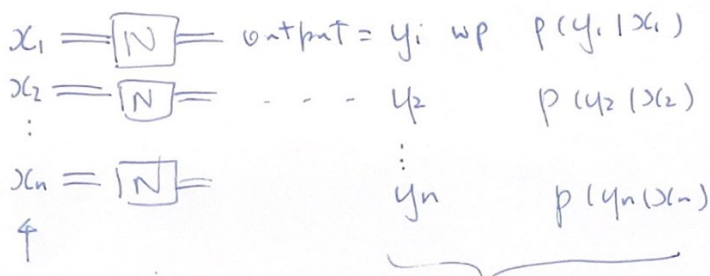 x₁ = N = output = yᵢ wp p(y₁|x₁)
x₂ = N = - - - y₂ p(y₂|x₂)
⋮ ⋮
xₙ = N = yₙ p(yₙ|xₙ)
↑